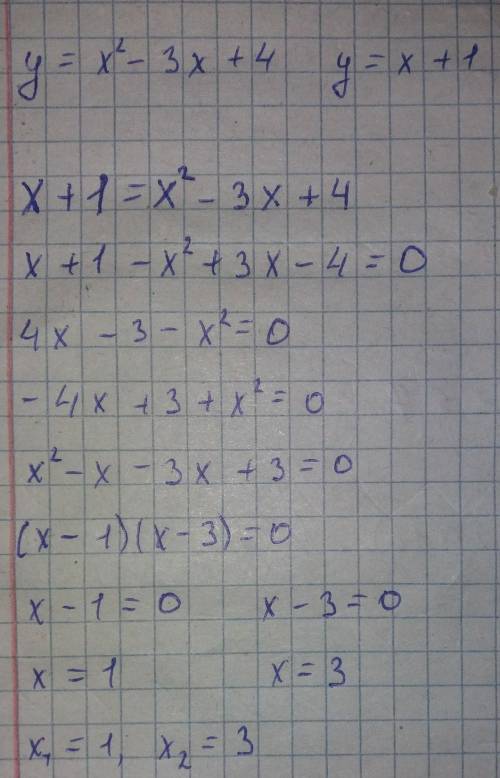 y = x² - 3x + 4    y = x + 1
x + 1 = x² - 3x + 4
x + 1 - x² + 3x - 4 = 0
4x - 3 - x² = 0
- 4x + 3 + x² = 0
x² - x - 3x + 3 = 0
(x - 1)(x - 3) = 0
x - 1 = 0    x - 3 = 0
x = 1    x = 3
x₁ = 1, x₂ = 3